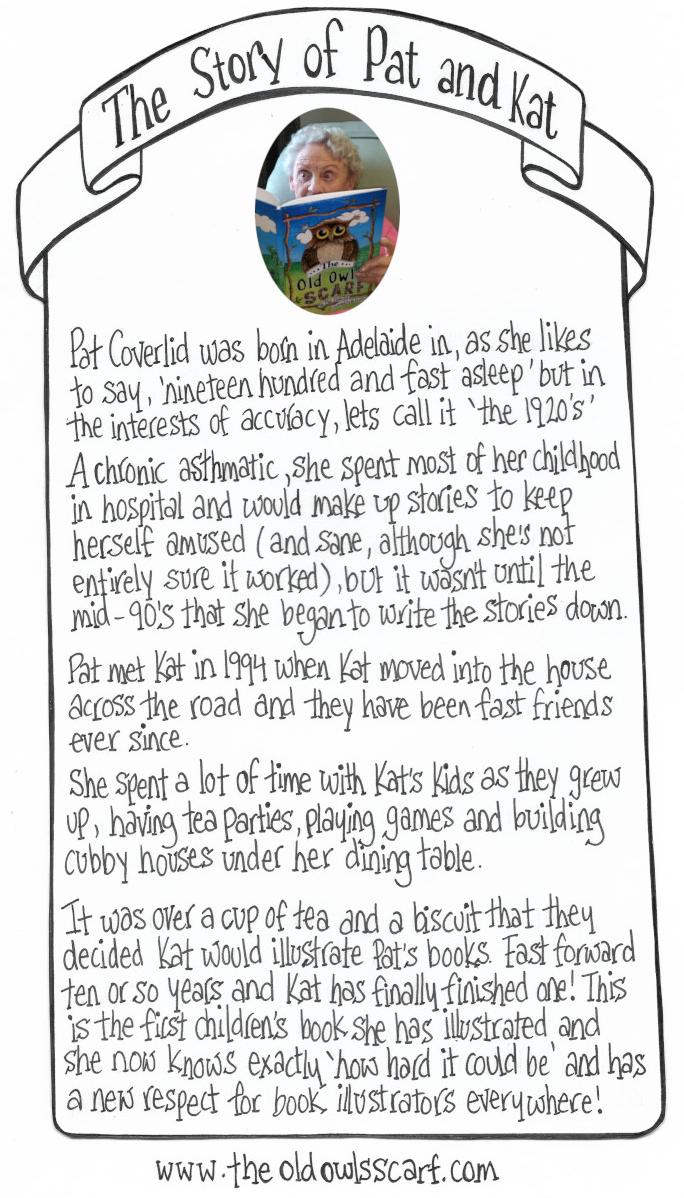 The Story of Pat and Kat
The
Old Owl's
SCARF
Pat Coverlid was born in Adelaide in, as she likes
to say, 'nineteen hundred and fast asleep' but in
the interests of accuracy, lets call it 'the 1920's'
A chronic asthmatic, she spent most of her childhood
in hospital and would make up stories to keep
herself amused (and sane, although she's not
entirely sure it worked), but it wasn't until the
mid-90's that she began to write the stories down.
Pat met Kat in 1994 when Kat moved into the house
across the road and they have been fast friends
ever since.
She spent a lot of time with Kat's kids as they grew
up, having tea parties, playing games and building
cubby houses under her dining table.
It was over a cup of tea and a biscuit that they
decided Kat would illustrate Pat's books. Fast forward
ten or so years and Kat has finally finished one! This
is the first children's book she has illustrated and
she now knows exactly 'how hard it could be' and has
a new respect for book illustrators everywhere!
www.theoldowlsscarf.com